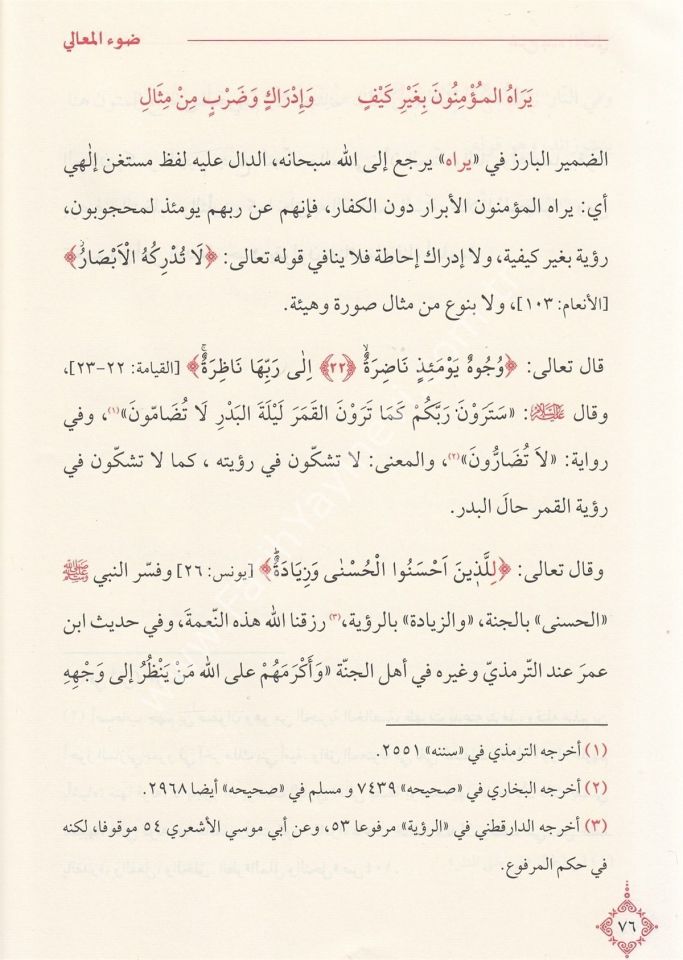 ضوء المعالي
يَرَاهُ المُؤْمِنُونَ بِغَيْرِ كَيْفٍ وَإِدْرَاكٍ وَضَرْبٍ مِنْ مِثَالِ
الضمير البارز في «يراه» يرجع إلى الله سبحانه، الدال عليه لفظ مستغن إلٰهي
أي: يراه المؤمنون الأبرار دون الكفار، فإنهم عن ربهم يومئذ لمحجوبون،
رؤية بغير كيفية، ولا إدراك إحاطة فلا ينافي قوله تعالى: ﴿لَا تُدْرِكُهُ الْاَبْصَارُ﴾
[الأنعام: ١٠٣]، ولا بنوع من مثال صورة وهيئة.
قال تعالى: ﴿وُجُوهٌ يَوْمَئِذٍ نَاضِرَةٌ ﴿٢٢﴾ اِلٰى رَبِّهَا نَاظِرَةٌ﴾ [القيامة: ٢٢-٢٣]،
وقال ﷺ: «سَتَرَوْنَ رَبَّكُمْ كَمَا تَرَوْنَ القَمَرَ لَيْلَةَ البَدْرِ لَا تُضَامّونَ»(١)، وفي
رواية: «لاَ تُضَارُّونَ»(٢)، والمعنى: لا تشكّون في رؤيته ، كما لا تشكّون في
رؤية القمر حالَ البدر.
وقال تعالى: ﴿لِلَّذٖينَ اَحْسَنُوا الْحُسْنٰى وَزِيَادَةٌ﴾ [يونس: ٢٦] وفسّر النبي ﷺ
«الحسنى» بالجنة، «والزيادة» بالرؤية،(٣) رزقنا الله هذه النّعمةَ، وفي حديث ابن
عمرَ عند التّرمذيّ وغيره في أهل الجنّة «وَأَكْرَمَهُمْ على الله مَنْ يَنْظُرُ إلى وَجْهِهِ
(١) أخرجه الترمذي في «سننه» ٢٥٥١.
(٢) أخرجه البخاري في «صحيحه» ٧٤٣٩ و مسلم في «صحيحه» أيضا ٢٩٦٨.
(٣) أخرجه الدارقطني في «الرؤية» مرفوعا ٥٣، وعن أبي موسي الأشعري ٥٤ موقوفا، لكنه
في حكم المرفوع.
٧٦